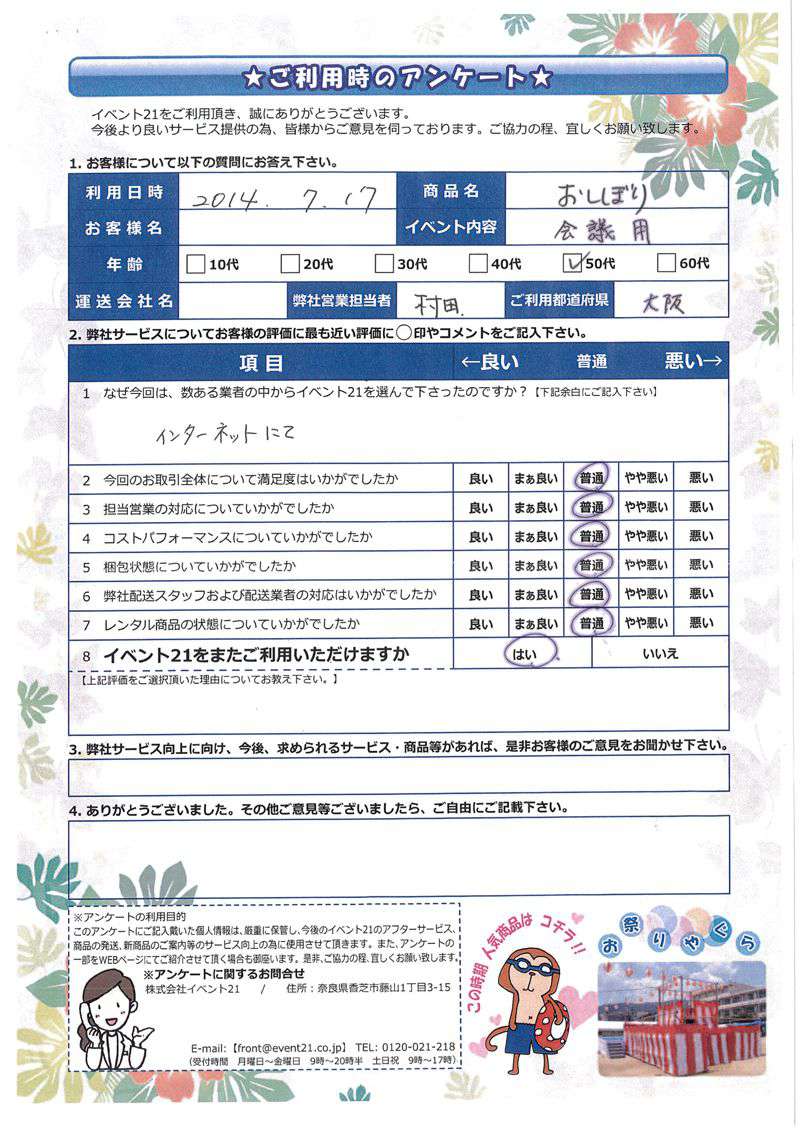 ★ご利用時のアンケート★
イベント21をご利用頂き、誠にありがとうございます。
今後より良いサービス提供の為、皆様からご意見を伺っております。ご協力の程、宜しくお願い致します。
1. お客様について以下の質問にお答え下さい。
利用日時 2014. 7. 17 商品名 おしぼり
お客様名 イベント内容 会議用
年齢 10代 20代 30代 40代 50代 60代
運送会社名 弊社営業担当者 村田. ご利用都道府県 大阪
2. 弊社サービスについてお客様の評価に最も近い評価に◯印やコメントをご記入下さい。
項目 ←良い 普通 悪い→
1 なぜ今回は、数ある業者の中からイベント21を選んで下さったのですか？【下記余白にご記入下さい】
インターネットにて
2 今回のお取引全体について満足度はいかがでしたか 良い まぁ良い 普通 やや悪い 悪い
3 担当営業の対応についていかがでしたか 良い まぁ良い 普通 やや悪い 悪い
4 コストパフォーマンスについていかがでしたか 良い まぁ良い 普通 やや悪い 悪い
5 梱包状態についていかがでしたか 良い まぁ良い 普通 やや悪い 悪い
6 弊社配送スタッフおよび配送業者の対応はいかがでしたか 良い まぁ良い 普通 やや悪い 悪い
7 レンタル商品の状態についていかがでしたか 良い まぁ良い 普通 やや悪い 悪い
8 イベント21をまたご利用いただけますか はい いいえ
【上記評価をご選択頂いた理由についてお教え下さい。】
3. 弊社サービス向上に向け、今後、求められるサービス・商品等があれば、是非お客様のご意見をお聞かせ下さい。
4. ありがとうございました。その他ご意見等ございましたら、ご自由にご記載下さい。
※アンケートの利用目的
このアンケートにご記入戴いた個人情報は、厳重に保管し、今後のイベント21のアフターサービス、
商品の発送、新商品のご案内等のサービス向上の為に使用させて頂きます。また、アンケートの
一部をWEBページにてご紹介させて頂く場合も御座います。是非、ご協力の程、宜しくお願い致します。
※アンケートに関するお問合せ
株式会社イベント21 / 住所：奈良県香芝市藤山1丁目3-15
E-mail:【front@event21.co.jp】 TEL: 0120-021-218
（受付時間 月曜日〜金曜日 9時〜20時半 土日祝 9時〜17時）
この時期 人気商品は コチラ!!
お祭りやぐら